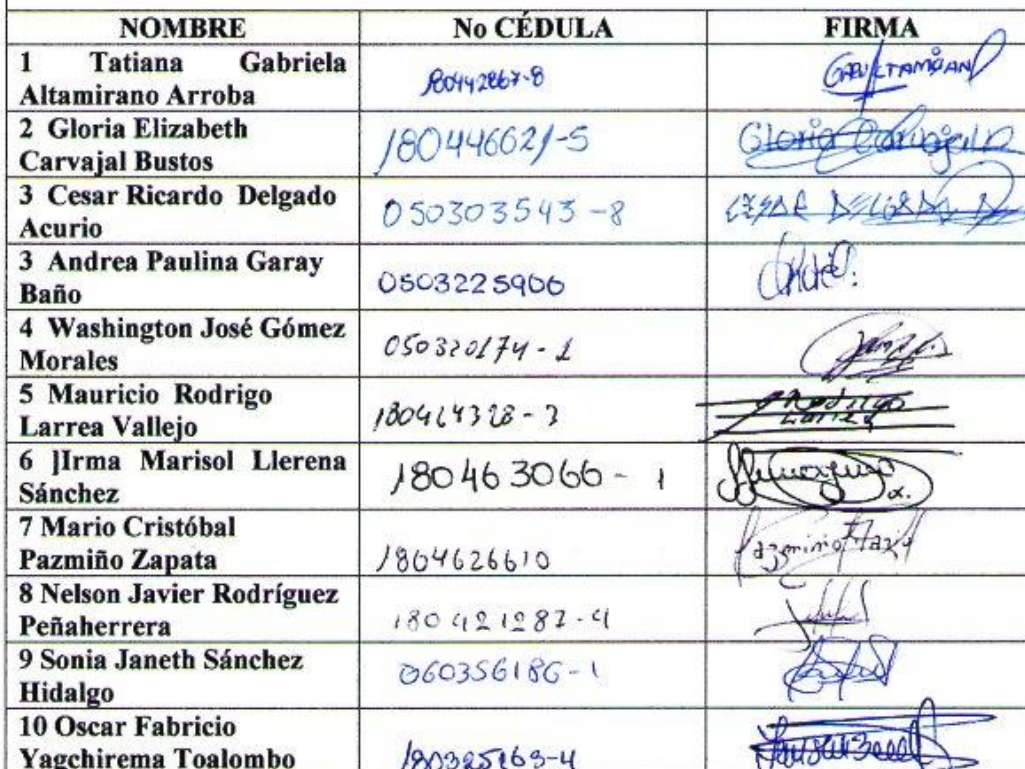 NOMBRE No CÉDULA FIRMA
1 Tatiana Gabriela
Altamirano Arroba
180442867-8
2 Gloria Elizabeth
Carvajal Bustos
180446621-5 Gloria Carvajal
3 Cesar Ricardo Delgado
Acurio
050303543-8 CESAR DELGADO
3 Andrea Paulina Garay
Baño
0503225906
4 Washington José Gómez
Morales
050320174-1
5 Mauricio Rodrigo
Larrea Vallejo
Rodrigo
Larrea
6 ]Irma Marisol Llerena
Sánchez
180463066-1
7 Mario Cristóbal
Pazmiño Zapata
1804626610 Pazmiño Mario
8 Nelson Javier Rodríguez
Peñaherrera
180421287-4
9 Sonia Janeth Sánchez
Hidalgo
060356186-1
10 Oscar Fabricio
Yagchirema Toalombo